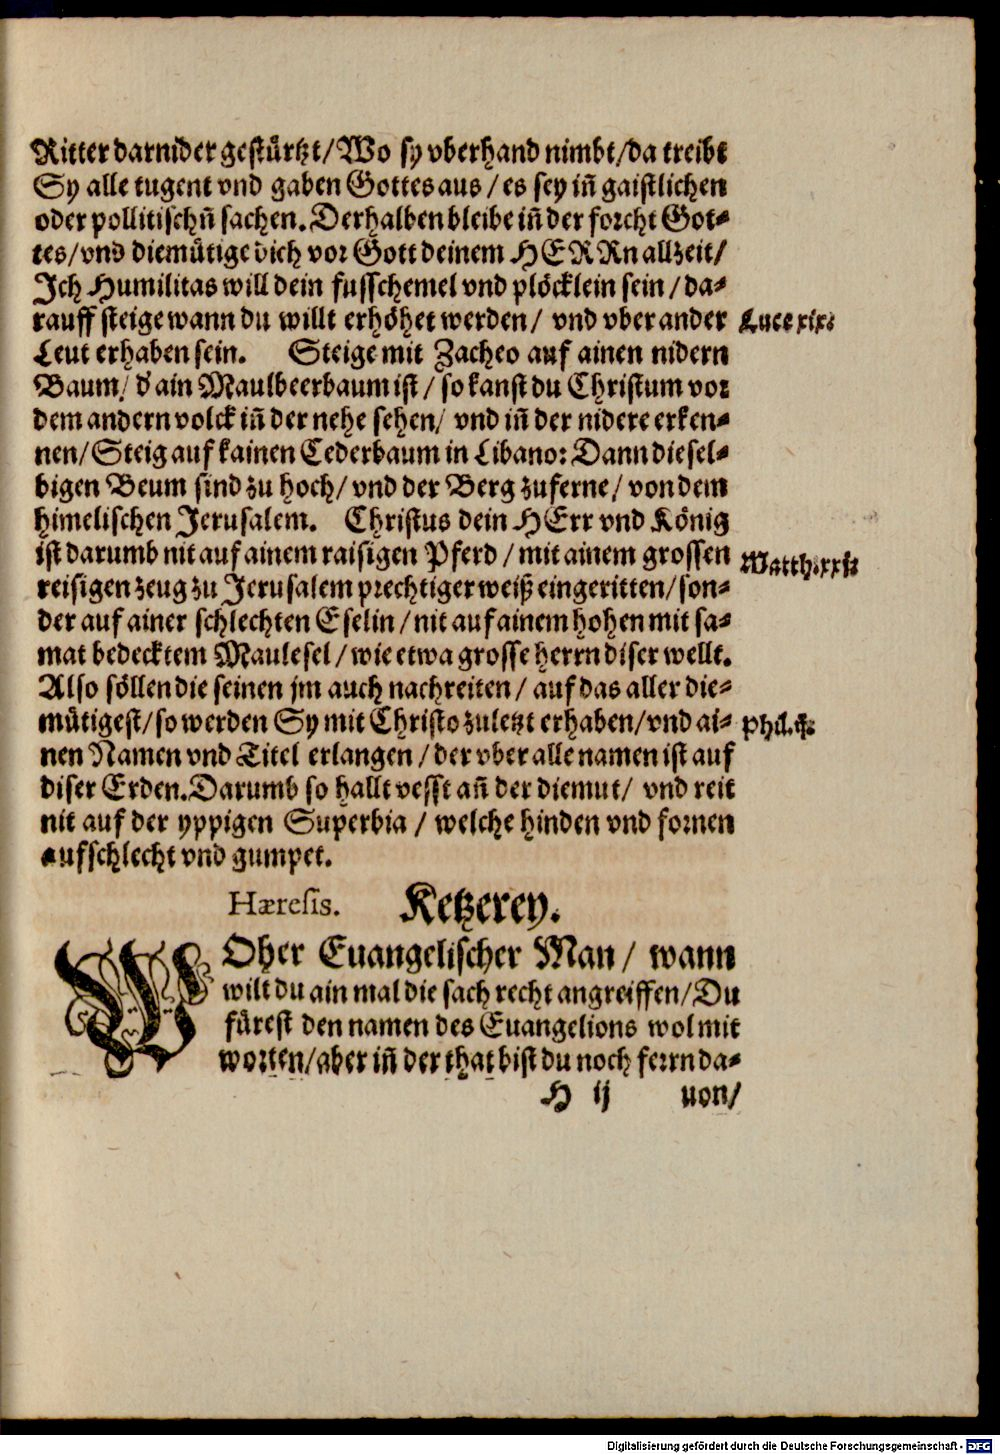 Ritter darnider gestürtzt/Wo sy vberhand nimbt/da treibt
Sy alle tugent vnd gaben Gottes aus/es sey in̄ gaistlichen
oder pollitischn̄ sachen. Derhalben bleibe in̄ der forcht Got-
tes/vnd diemütige dich vor Gott deinem HERRn allzeit/
Ich Humilitas will dein fusschemel vnd plöcklein sein/da-
rauff steige wann du willt erhöhet werden/ vnd vber ander
Luce xix.
Leut erhaben sein. Steige mit Zacheo auf ainen nidern
Baum/ d' ain Maulbeerbaum ist/so kanst du Christum vor
dem andern volck in̄ der nehe sehen/ vnd in̄ der nidere erken-
nen/Steig auf kainen Cederbaum in Libano: Dann diesel-
bigen Beum sind zu hoch/vnd der Berg zu ferne/von dem
himelischen Jerusalem. Christus dein HErr vnd König
ist darumb nit auf ainem raisigen Pferd/mit ainem grossen
Matth. xxi.
reisigen zeug zu Jerusalem prechtiger weiß eingeritten/son-
der auf ainer schlechten Eselin/nit auf ainem hohen mit sa-
mat bedecktem Maulesel/wie etwa grosse herrn diser wellt.
Also söllen die seinen jm auch nachreiten/auf das aller die-
mütigest/so werden Sy mit Christo zuletzt erhaben/vnd ai-
Phil. ij.
nen Namen vnd Titel erlangen/der vber alle namen ist auf
diser Erden. Darumb so hallt vesst an̄ der diemut/ vnd reit
nit auf der yppigen Superbia/welche hinden vnd fornen
aufschlecht vnd gumpet.
Hæresis. Ketzerey.
WOher Euangelischer Man/ wann
wilt du ain mal die sach recht angreiffen/Du
fürest den namen des Euangelions wol mit
worten/aber in̄ der that bist du noch ferrn da-
H ij uon/
Digitalisierung gefördert durch die Deutsche Forschungsgemeinschaft - DFG